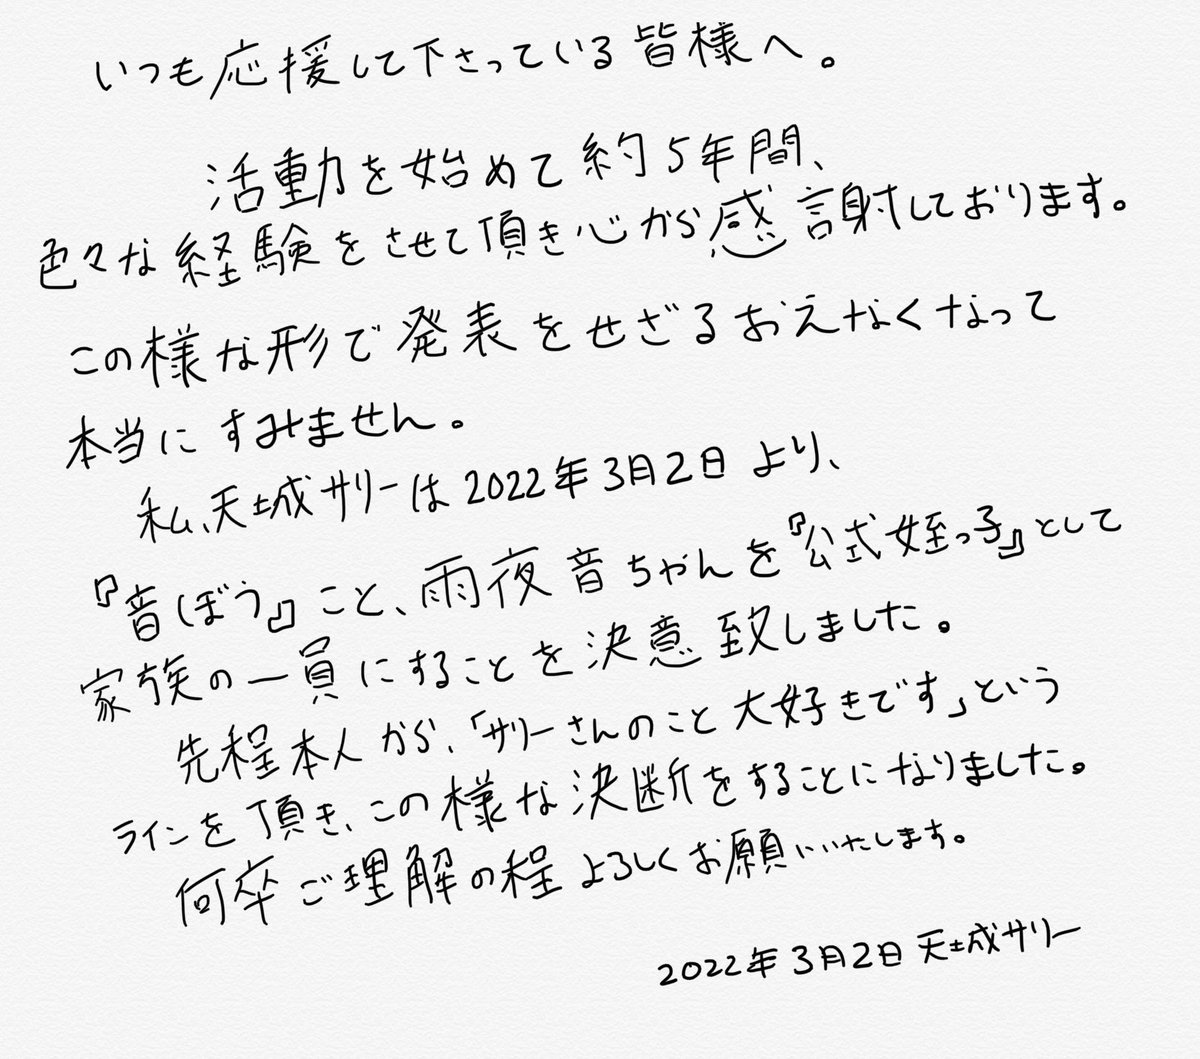 いつも応援して下さっている皆様へ。
活動を始めて約5年間、
色々な経験をさせて頂き心から感謝しております。
この様な形で発表をせざるおえなくなって
本当にすみません。
私、天城サリーは2022年3月2日より、
『音ぼう』こと、雨夜音ちゃんを『公式姪っ子』として
家族の一員にすることを決意致しました。
先程本人から、「サリーさんのこと大好きです」という
ラインを頂き、この様な決断をすることになりました。
何卒ご理解の程よろしくお願いいたします。
2022年3月2日 天城サリー